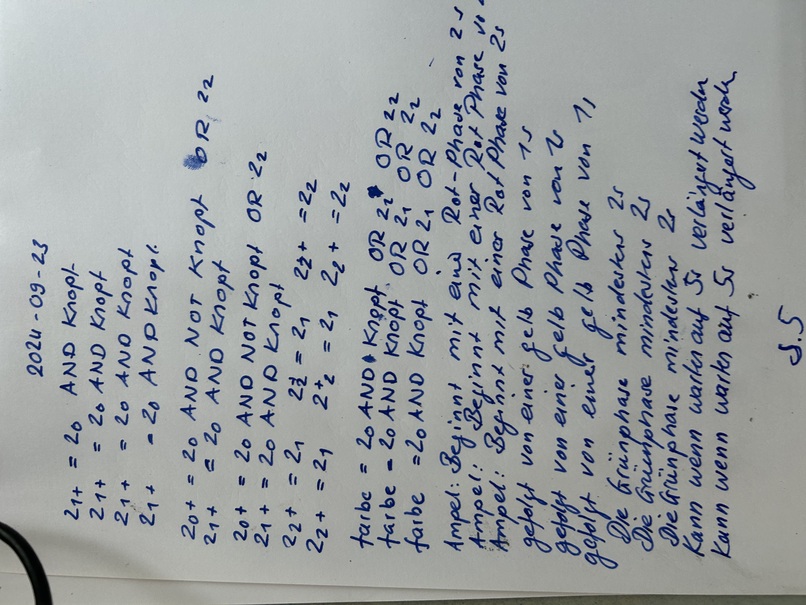 2024-09-23
z1+ = z0 AND Knopf
z1+ = z0 AND Knopf
z1+ = z0 AND Knopf
z1+ = z0 AND Knopf
z0+ = z0 AND NOT Knopf OR z2
z1+ = z0 AND Knopf
z0+ = z0 AND NOT Knopf OR z2
z1+ = z0 AND Knopf
z2+ = z1 z2+ = z1 z2+ = z2
z2+ = z1 z2+ = z1 z2+ = z2
farbe = z0 AND Knopf OR z2 OR z2
farbe = z0 AND Knopf OR z1 OR z2
farbe = z0 AND Knopf OR z1 OR z2
Ampel: Beginnt mit eine Rot-Phase von 2s
Ampel: Beginnt mit einer Rot Phase
Ampel: Beginnt mit einer Rot Phase von 2s
gefolgt von einer gelb Phase von 1s
gefolgt von einer gelb Phase von 1s
gefolgt von einer gelb Phase von 1s
Die Grünphase mindestens 2s
Die Grünphase mindestens 2s
Die Grünphase mindestens 2s
Kann wenn warten auf 5s verlängert werden
Kann wenn warten auf 5s verlängert werden
S.5